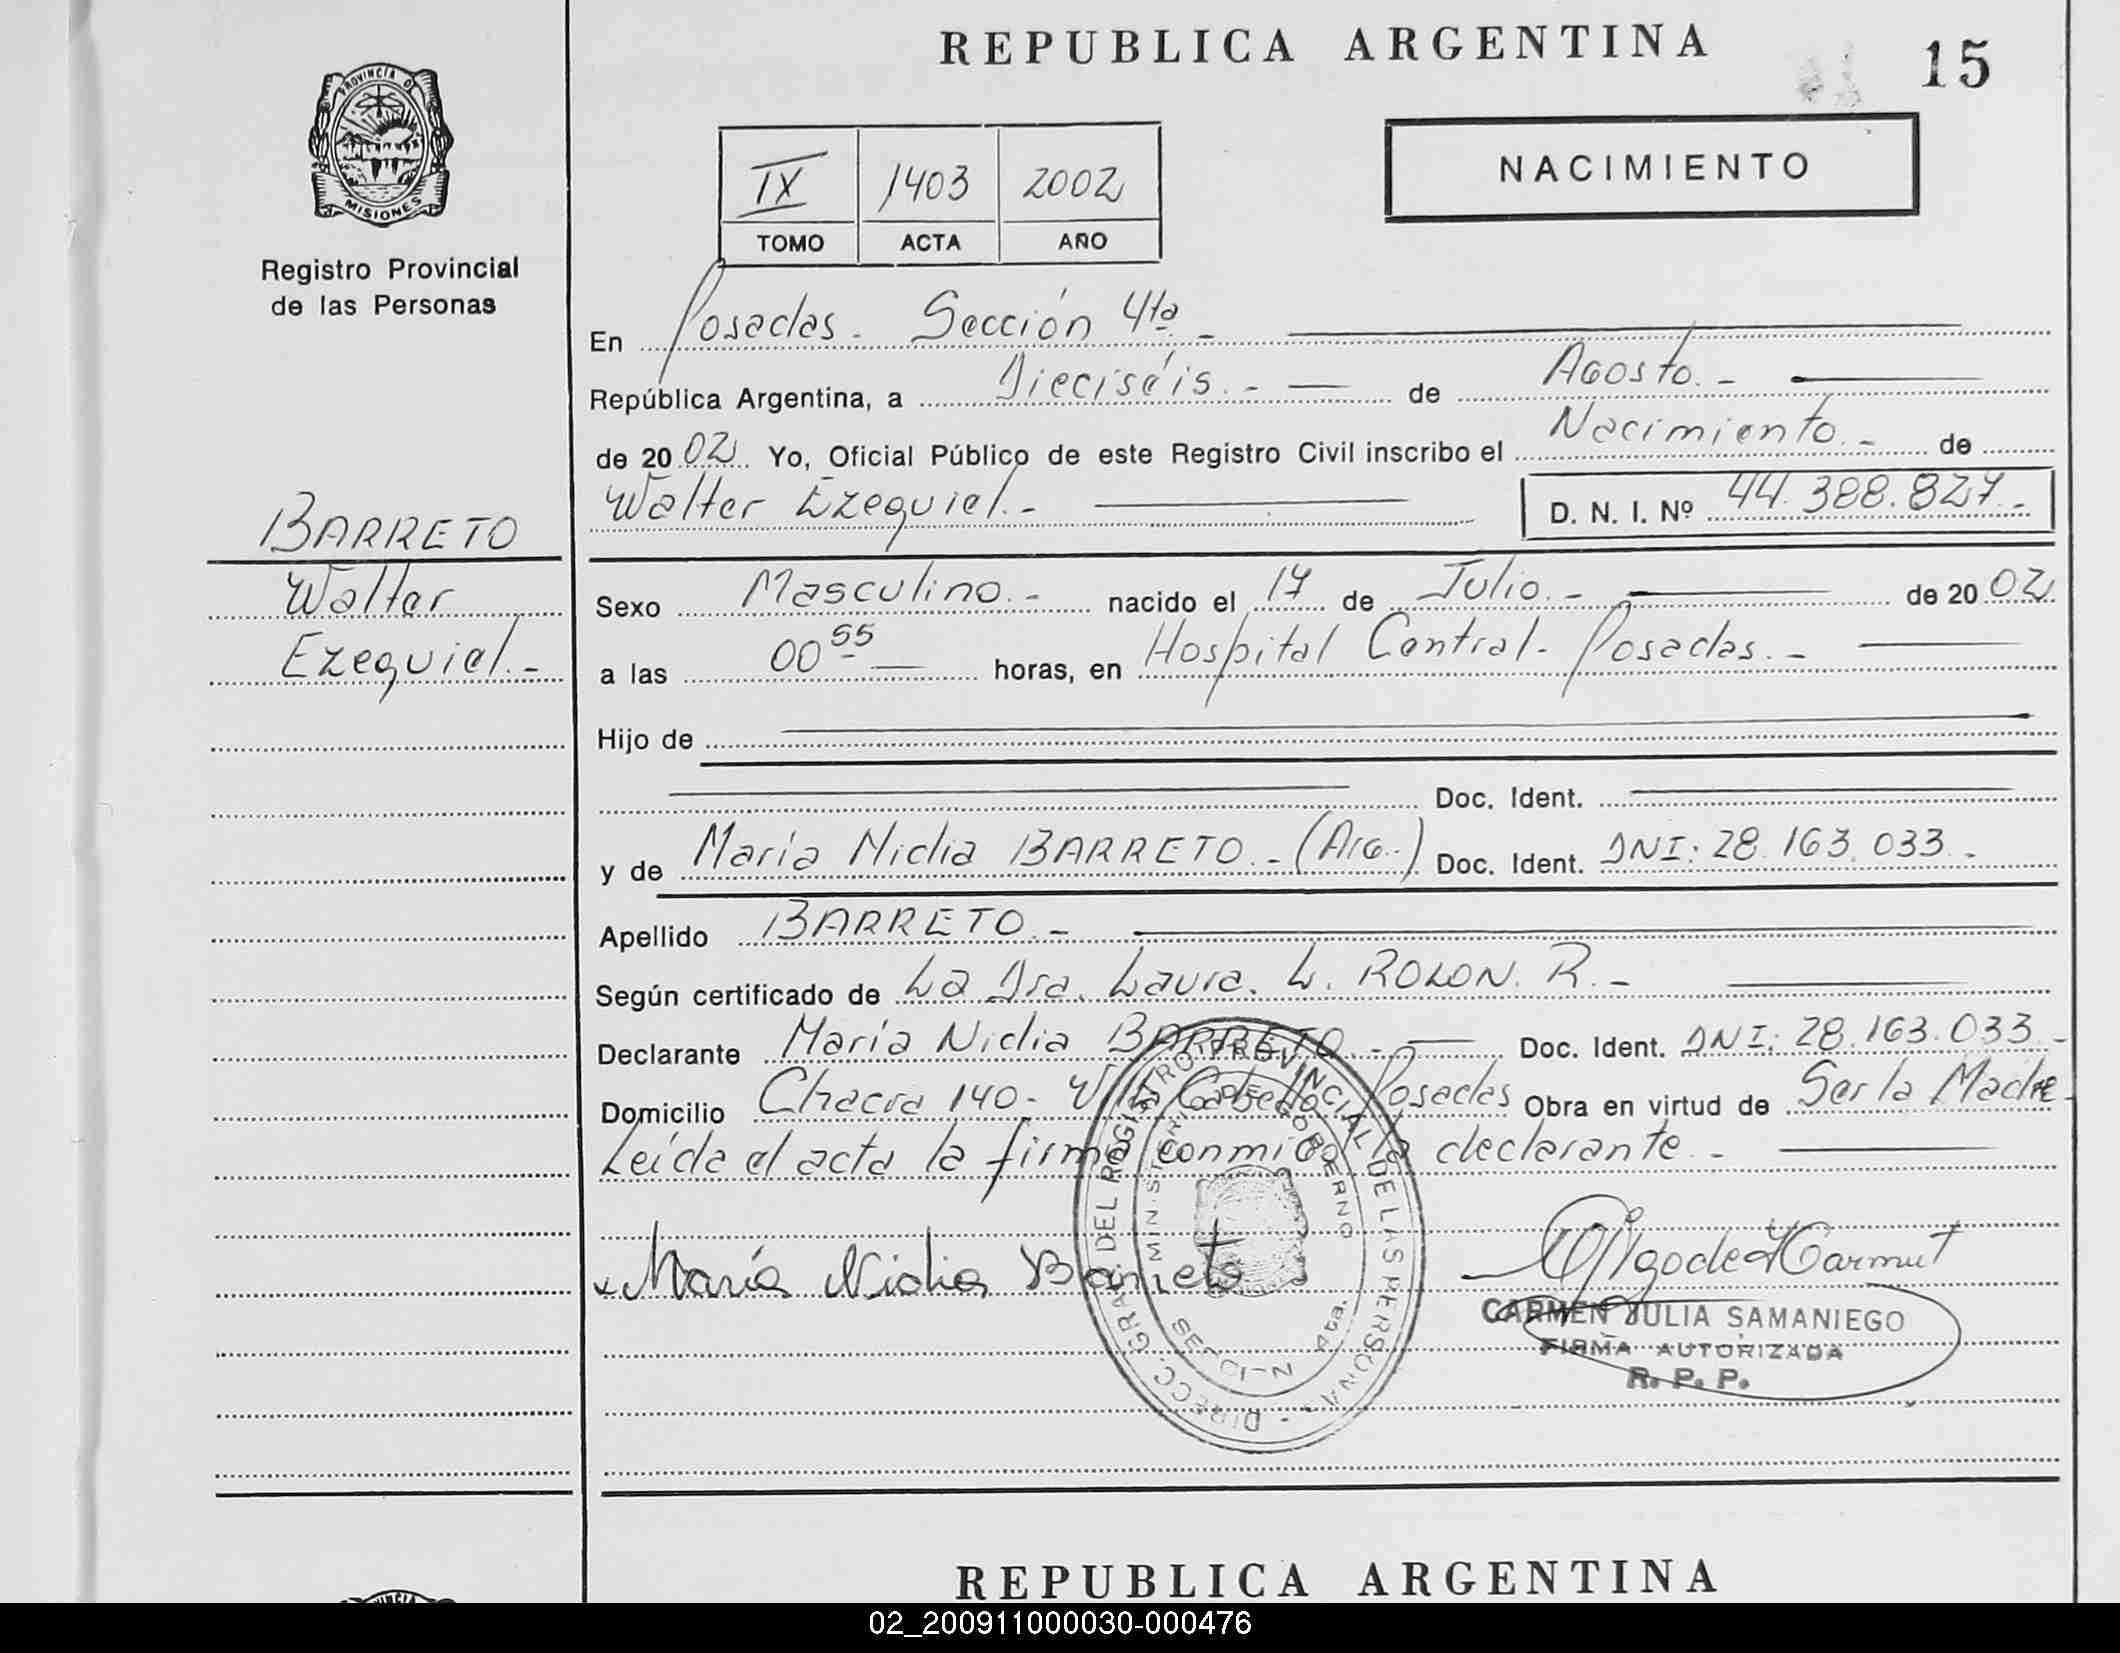 REPUBLICA ARGENTINA
15
PROVINCIA D
MISIONES
Registro Provincial
de las Personas
IX 1403 2002
TOMO ACTA AÑO
NACIMIENTO
En Posadas. Sección 4ta.-
República Argentina, a Dieciséis.- de Agosto.-
de 2002 Yo, Oficial Público de este Registro Civil inscribo el Nacimiento.- de
Walter Ezequiel.- D. N. I. Nº 44.388.827.-
BARRETO
Walter
Ezequiel.-
Sexo Masculino.- nacido el 17 de Julio.- de 2002
a las 00 55 horas, en Hospital Central. Posadas.-
Hijo de
Doc. Ident.
y de María Nidia BARRETO.- (Arg.-) Doc. Ident. DNI: 28.163.033.-
Apellido BARRETO.-
Según certificado de La Dra. Laura. L. ROLON. R.-
Declarante María Nidia BARRETO.- Doc. Ident. DNI: 28.163.033.-
Domicilio Chacra 140- Villa Cabello Posadas Obra en virtud de Ser la Madre.-
Leída el acta la firma conmigo la declarante.-
María Nidia Barreto
DIRECC. GRAL. DEL REGISTRO PROVINCIAL DE LAS PERSONAS
MINISTERIO DE GOBIERNO
4ta.
CARMEN JULIA SAMANIEGO
FIRMA AUTORIZADA
R. P. P.
REPUBLICA ARGENTINA
02_200911000030-000476